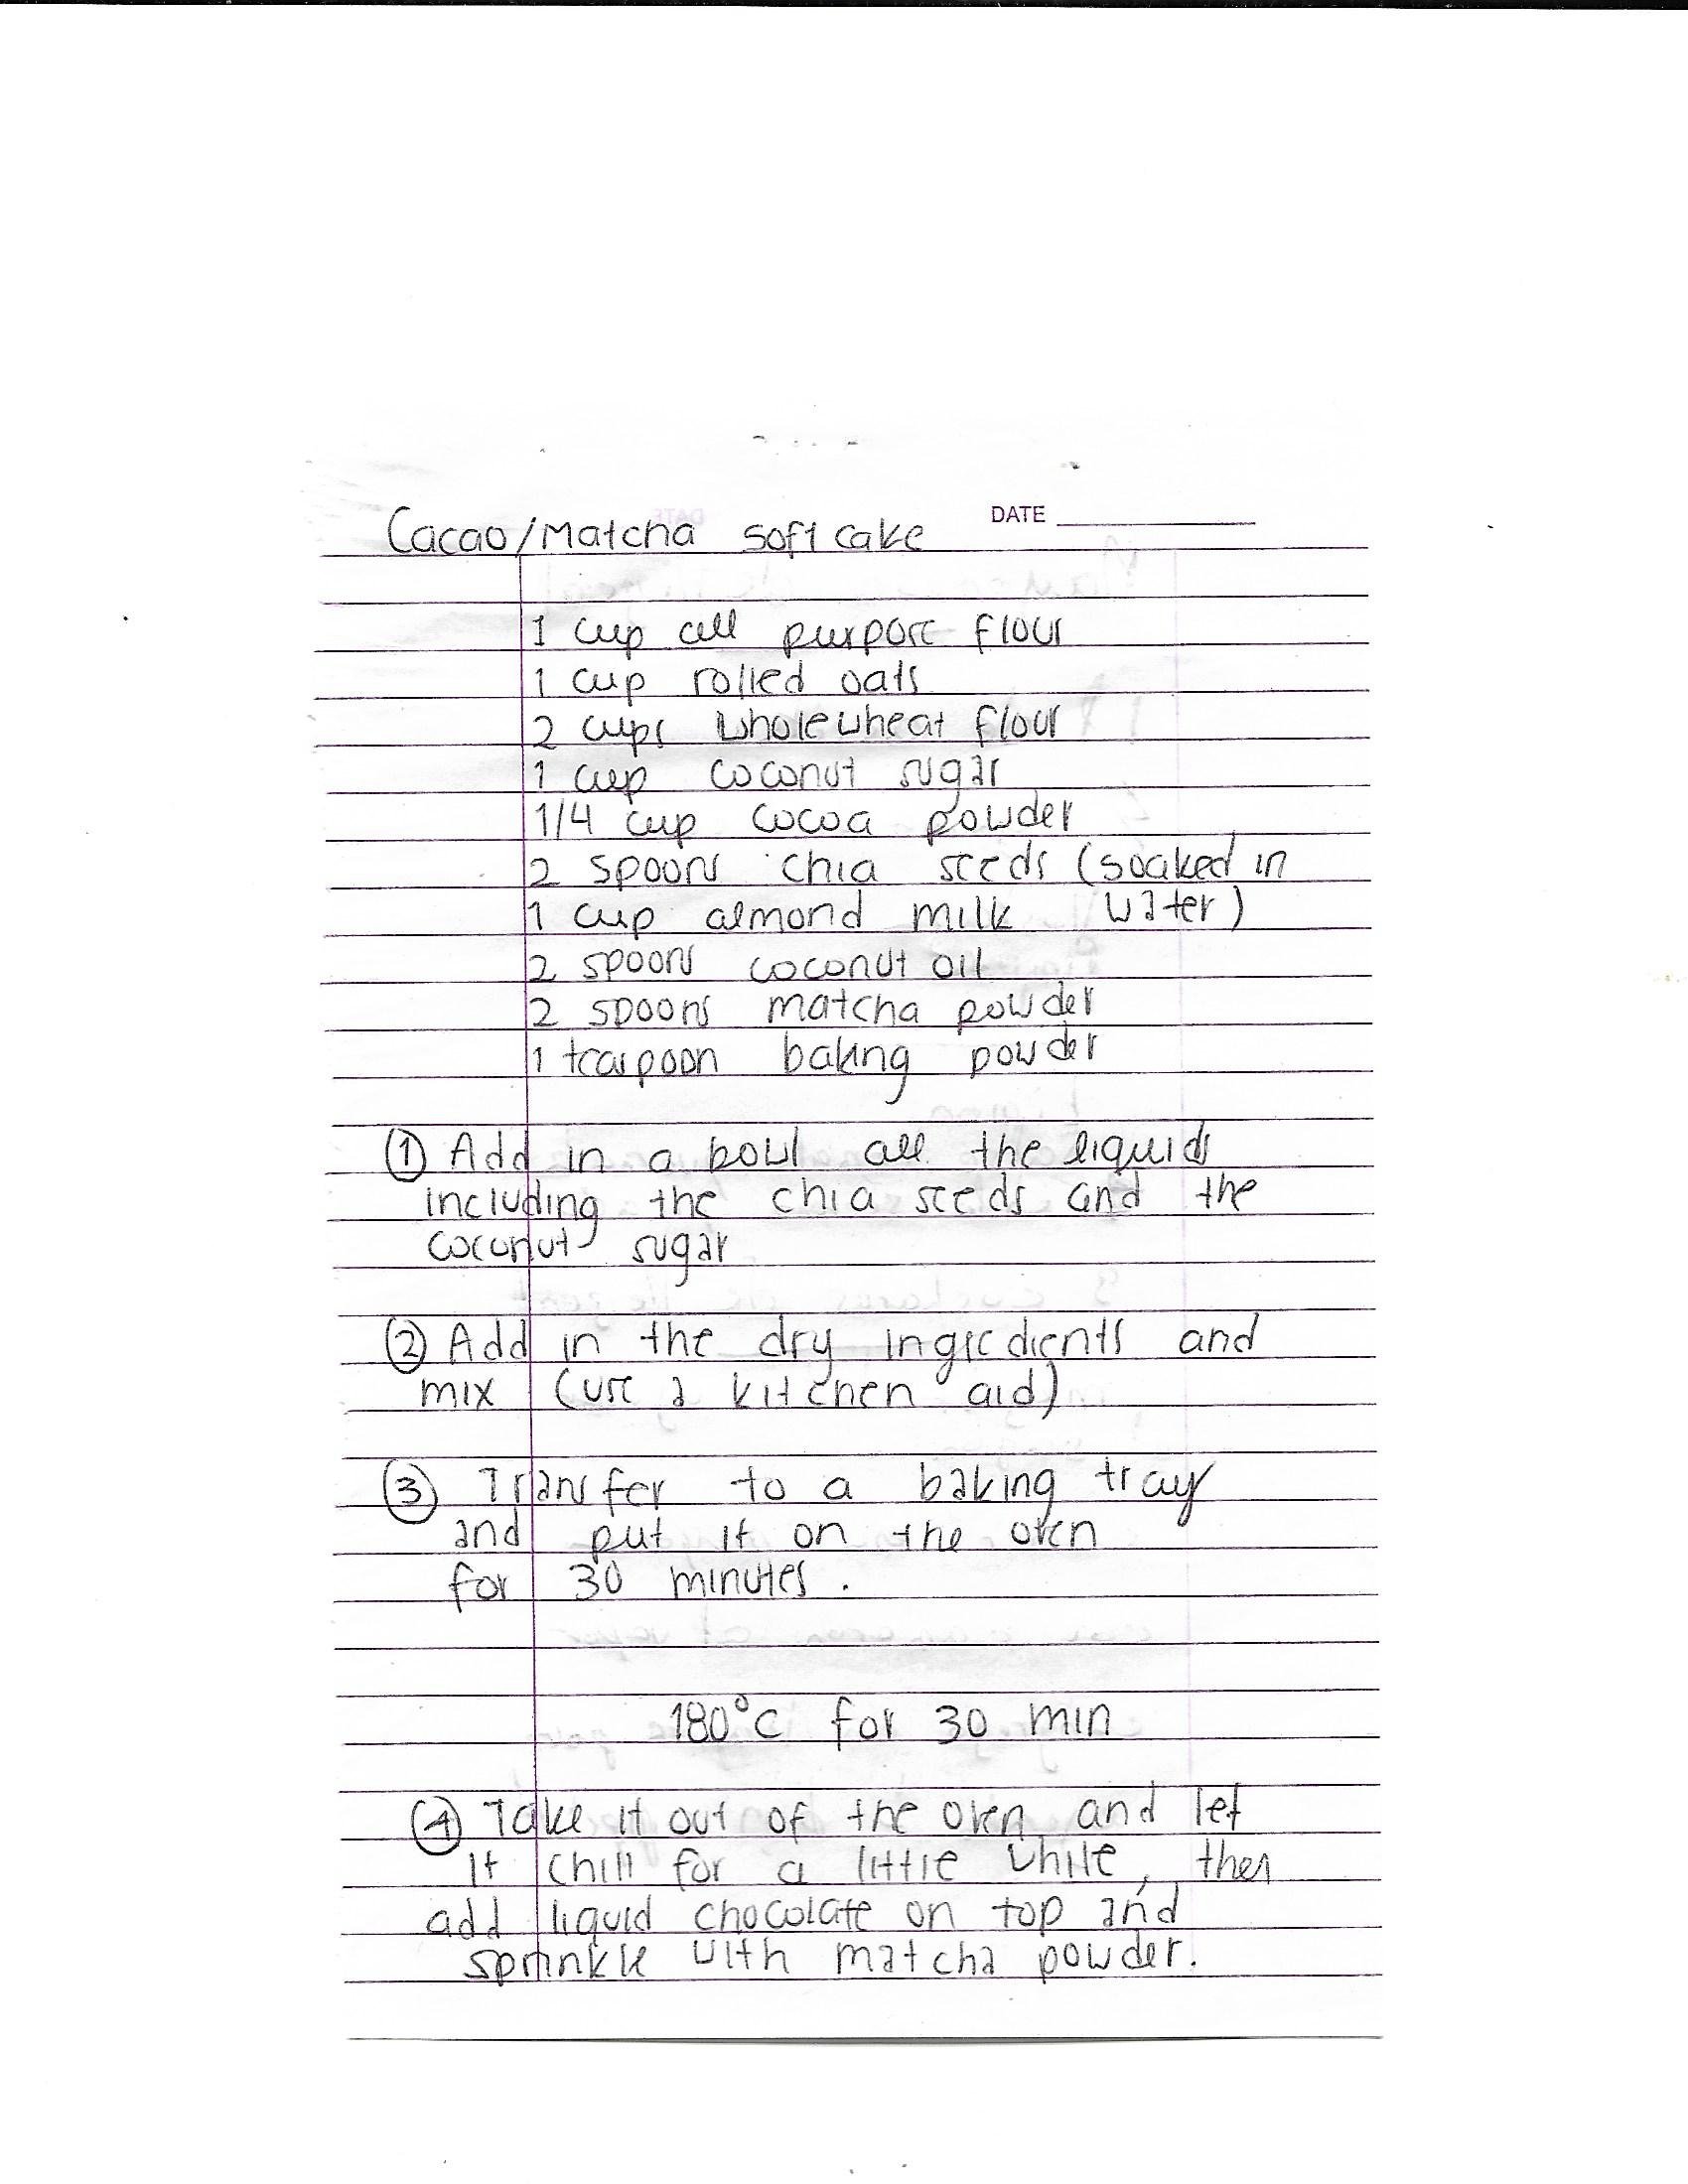 DATE
Cacao/Matcha soft cake
1 cup all purpose flour
1 cup rolled oats
2 cups wholewheat flour
1 cup coconut sugar
1/4 cup cocoa powder
2 spoons chia seeds (soaked in
1 cup almond milk water)
2 spoons coconut oil
2 spoons matcha powder
1 teaspoon baking powder
① Add in a bowl all the liquids
including the chia seeds and the
coconut sugar
② Add in the dry ingredients and
mix (use a kitchen aid)
③ Transfer to a baking tray
and put it on the oven
for 30 minutes.
180°C for 30 min
④ Take it out of the oven and let
it chill for a little while, then
add liquid chocolate on top and
sprinkle with matcha powder.